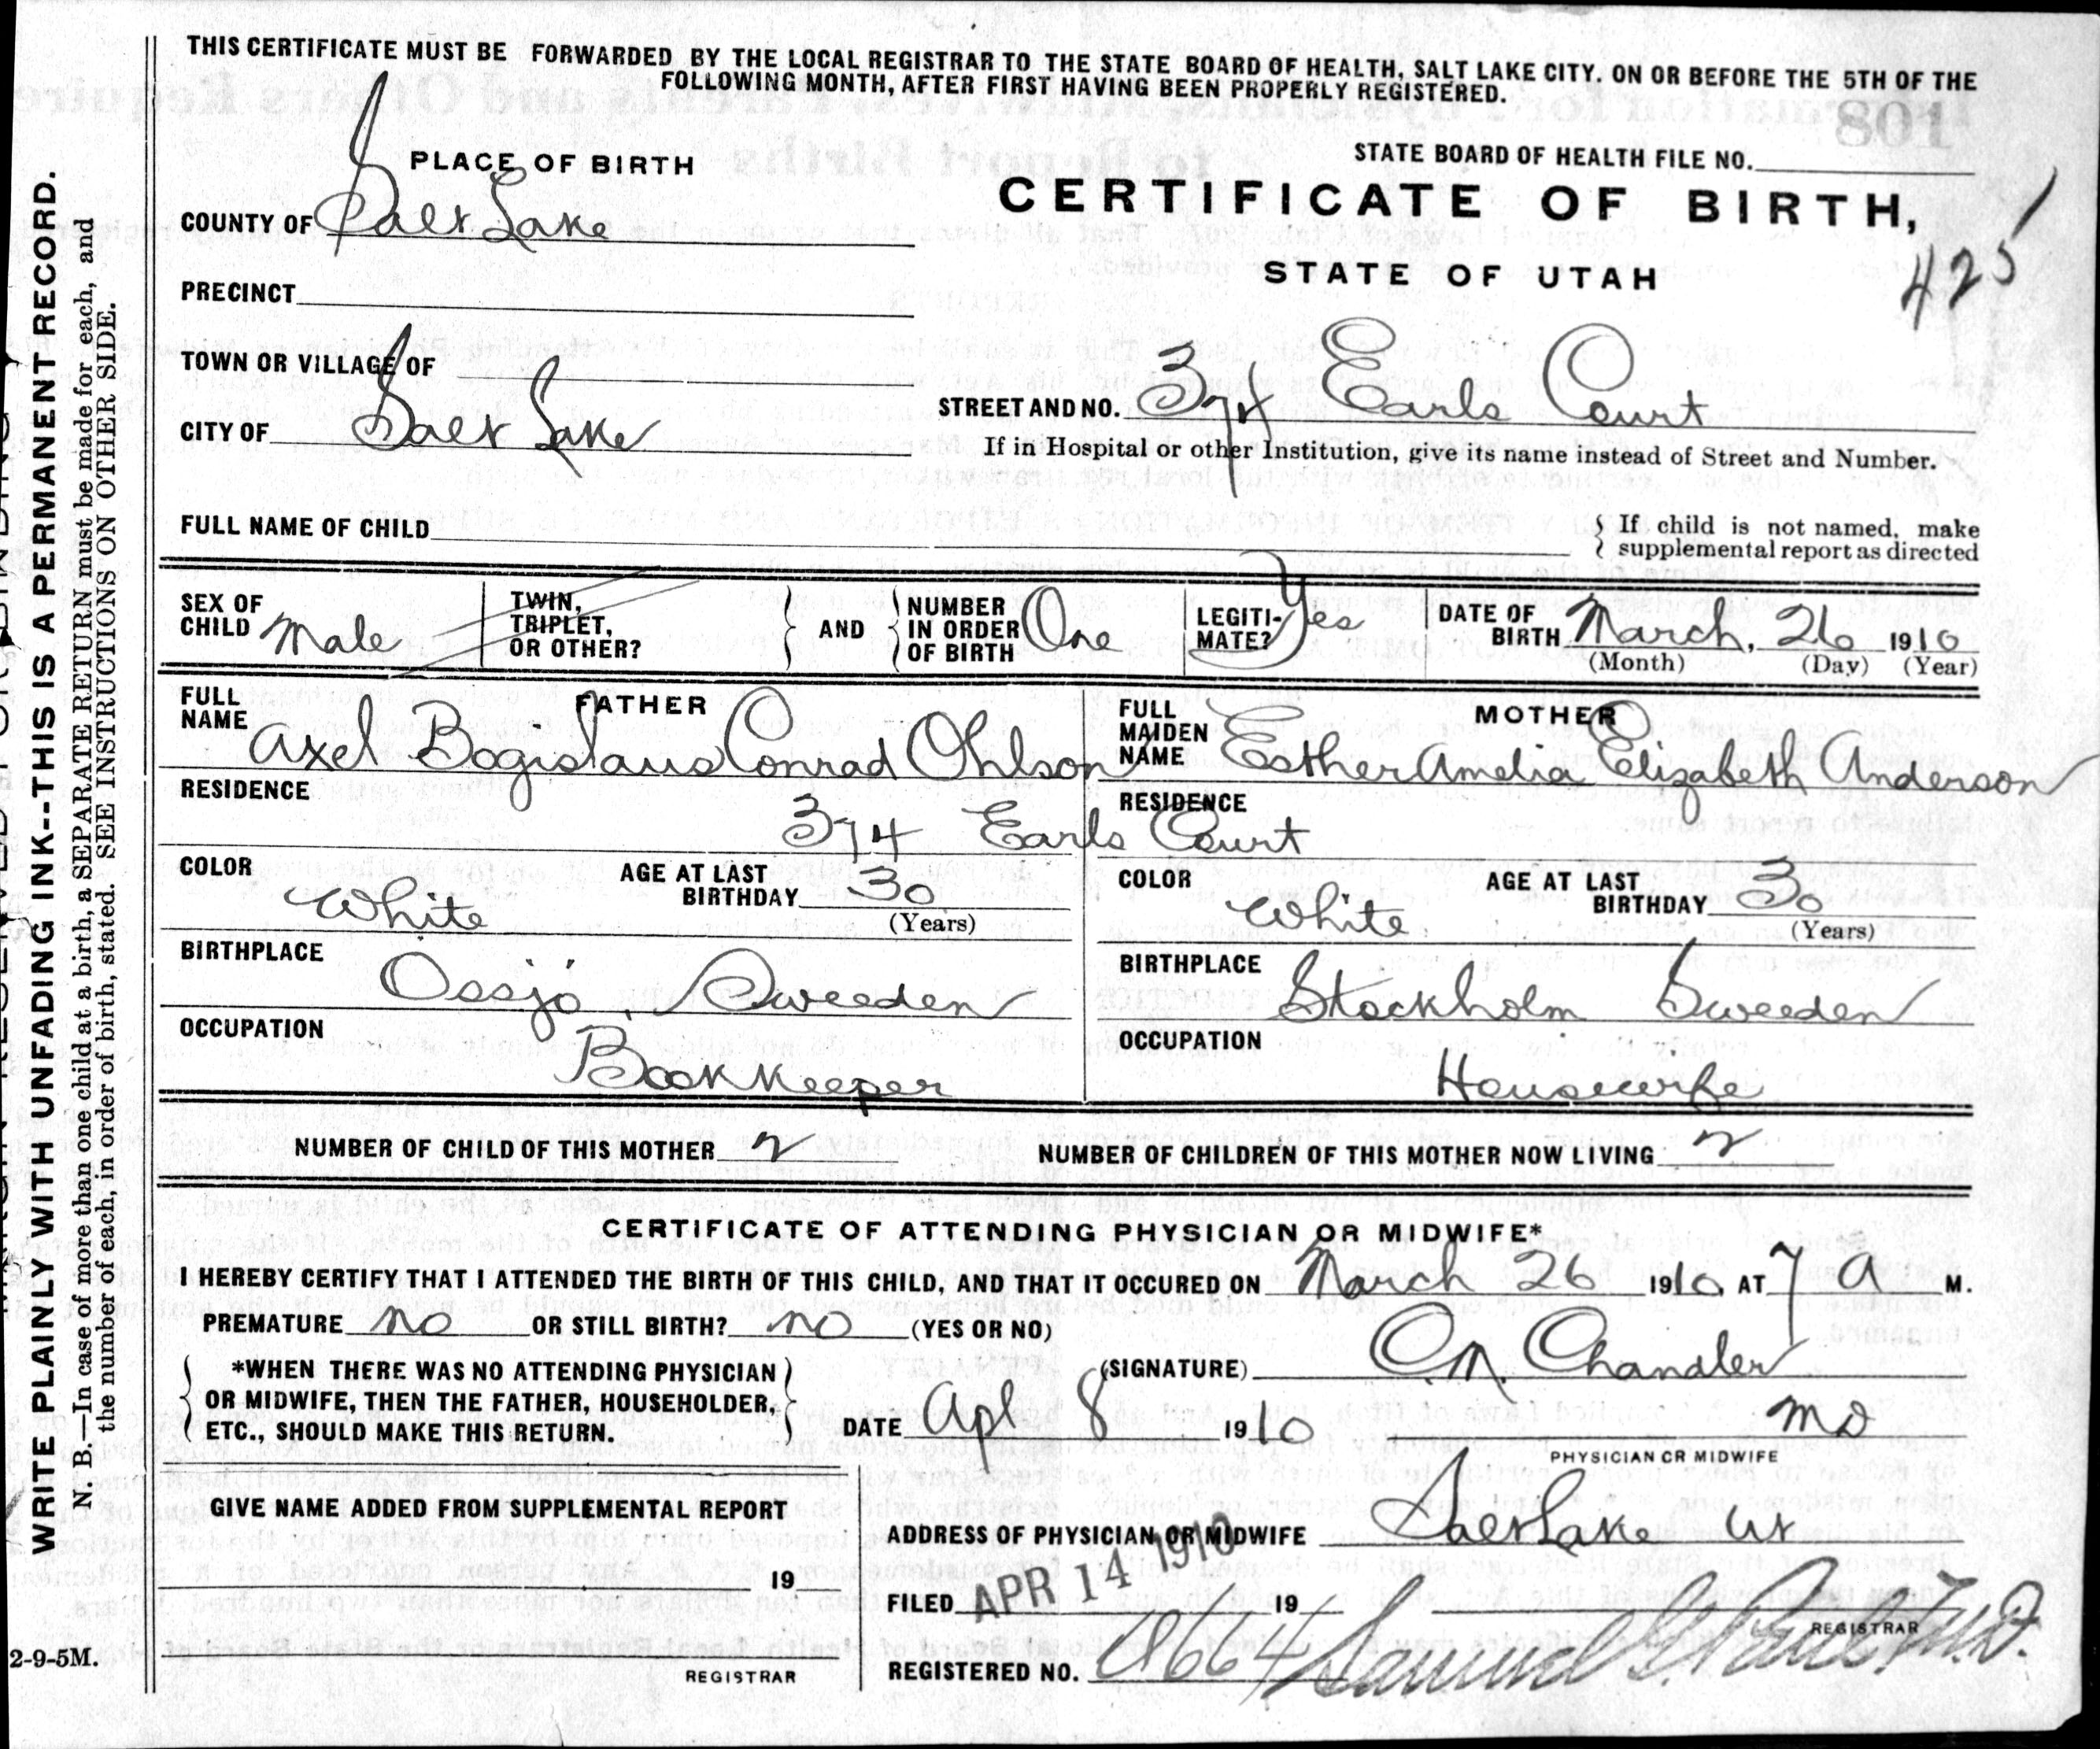 THIS CERTIFICATE MUST BE FORWARDED BY THE LOCAL REGISTRAR TO THE STATE BOARD OF HEALTH, SALT LAKE CITY, ON OR BEFORE THE 5TH OF THE
FOLLOWING MONTH, AFTER FIRST HAVING BEEN PROPERLY REGISTERED.
PLACE OF BIRTH
STATE BOARD OF HEALTH FILE NO.
108
COUNTY OF Salt Lake
CERTIFICATE OF BIRTH,
STATE OF UTAH
425
PRECINCT
TOWN OR VILLAGE OF
CITY OF Salt Lake
STREET AND NO. 374 Earls Court
If in Hospital or other Institution, give its name instead of Street and Number.
FULL NAME OF CHILD
If child is not named, make
supplemental report as directed
SEX OF CHILD Male
TWIN, TRIPLET, OR OTHER?
AND
NUMBER IN ORDER OF BIRTH One
LEGITI-MATE? Yes
DATE OF BIRTH March, 26 1910
(Month) (Day) (Year)
FATHER
FULL NAME Axel Bogislaus Conrad Ohlson
MOTHER
FULL MAIDEN NAME Esther Amelia Elizabeth Anderson
RESIDENCE
RESIDENCE
374 Earls Court
COLOR White
AGE AT LAST BIRTHDAY 30
(Years)
COLOR White
AGE AT LAST BIRTHDAY 30
(Years)
BIRTHPLACE Ossjö, Sweeden
BIRTHPLACE Stockholm Sweeden
OCCUPATION Book Keeper
OCCUPATION Housewife
NUMBER OF CHILD OF THIS MOTHER 2
NUMBER OF CHILDREN OF THIS MOTHER NOW LIVING 2
CERTIFICATE OF ATTENDING PHYSICIAN OR MIDWIFE*
I HEREBY CERTIFY THAT I ATTENDED THE BIRTH OF THIS CHILD, AND THAT IT OCCURED ON March 26 1910, AT 7 A M.
PREMATURE no OR STILL BIRTH? no (YES OR NO)
*WHEN THERE WAS NO ATTENDING PHYSICIAN
OR MIDWIFE, THEN THE FATHER, HOUSEHOLDER,
ETC., SHOULD MAKE THIS RETURN.
(SIGNATURE) C.M. Chandler
DATE Apl 8 1910
MD
PHYSICIAN OR MIDWIFE
GIVE NAME ADDED FROM SUPPLEMENTAL REPORT
19
REGISTRAR
ADDRESS OF PHYSICIAN OR MIDWIFE Salt Lake Ut
FILED APR 14 1910 19
REGISTRAR
REGISTERED NO. 664
Samuel G. Paul M.D.
WRITE PLAINLY WITH UNFADING INK--THIS IS A PERMANENT RECORD.
N. B.—In case of more than one child at a birth, a SEPARATE RETURN must be made for each, and
the number of each, in order of birth, stated. SEE INSTRUCTIONS ON OTHER SIDE.
2-9-5M.